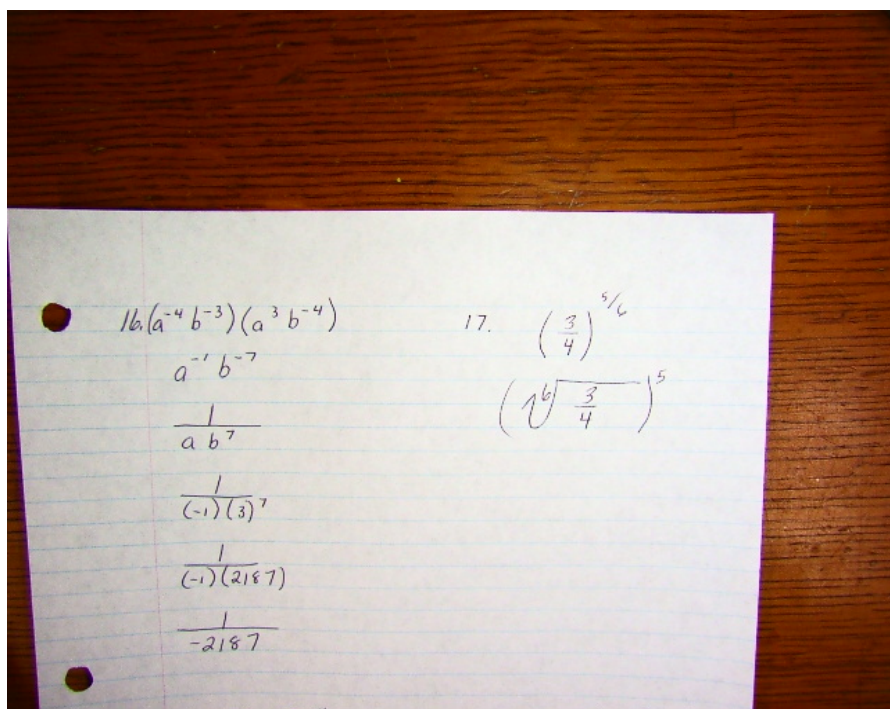 16. (a⁻⁴ b⁻³)(a³ b⁻⁴)
a⁻¹ b⁻⁷
1/(a b⁷)
1/((-1)(3)⁷)
1/((-1)(2187))
1/(-2187)
17. (3/4)^(5/6)
(⁶√(3/4))⁵